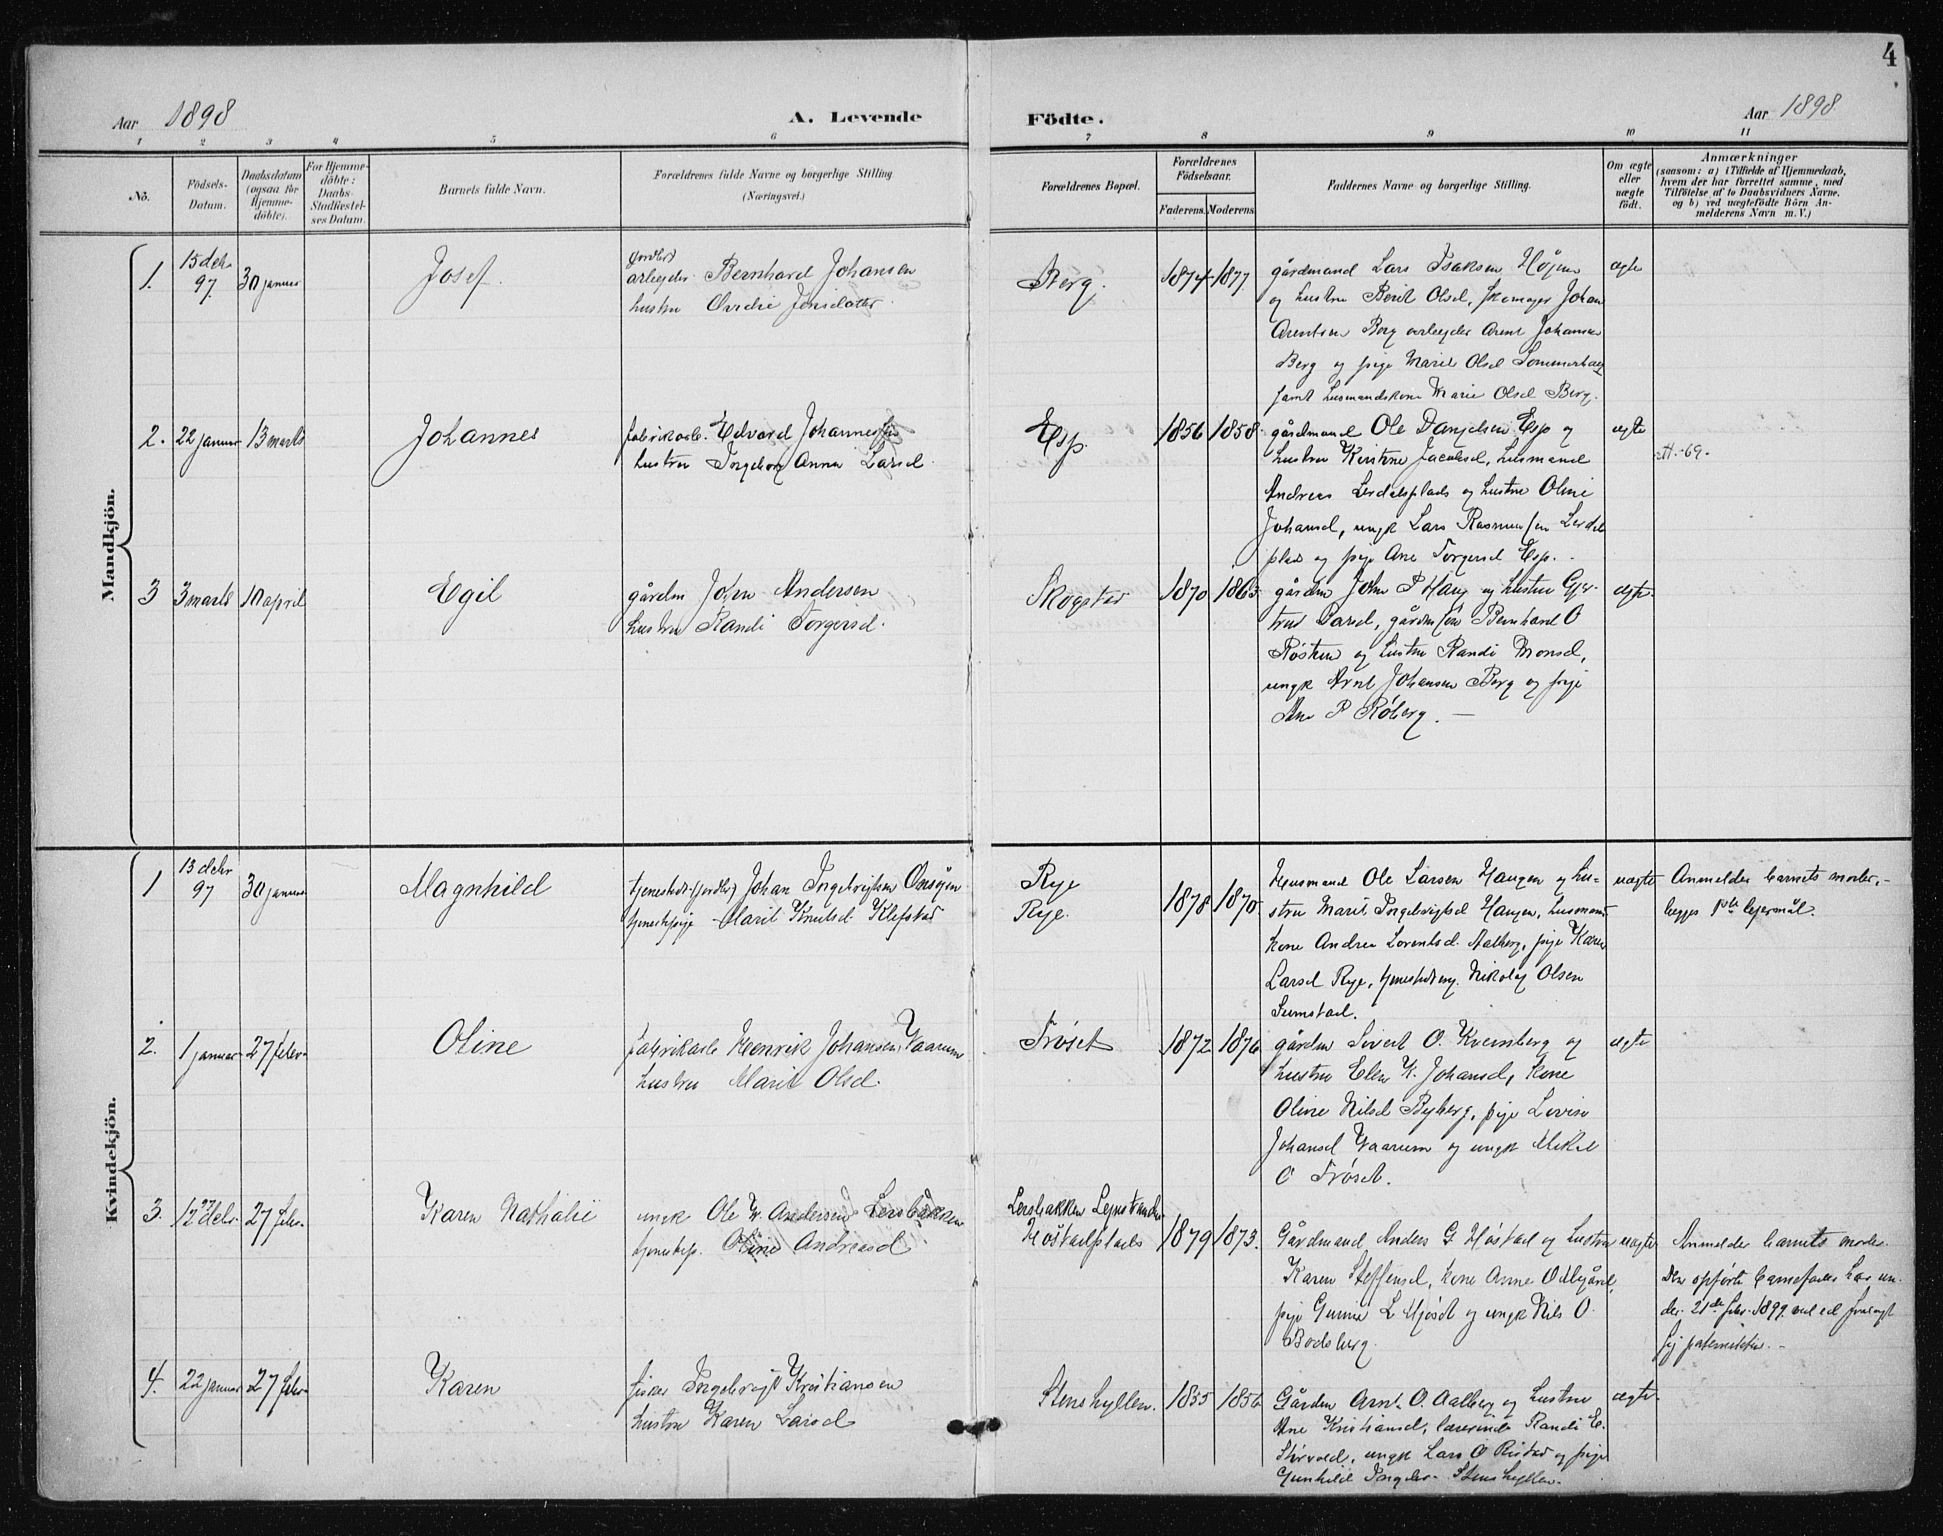 4
Aar 1898
A. Levende
Födte.
Aar 1898
1 2 3 4 5 6 7 8 9 10 11
No.
Födsels-
Datum.
Daabsdatum
(ogsaa for
Hjemme-
döbte).
For Hjemme-
döbte:
Daabs-
Stadfæstel-
ses Datum.
Barnets fulde Navn.
Forældrenes fulde Navne og borgerlige Stilling
(Næringsvei.)
Forældrenes Bopæl.
Forældrenes
Födselsaar.
Faderens. Moderens.
Faddernes Navne og borgerlige Stilling.
Om ægte
eller
uægte
födt.
Anmærkninger
(saasom: a) i Tilfælde af Hjemmedaab,
hvem der har forrettet samme, med
Tilföielse af to Daabsvidners Navne.
og b) ved uægtefödte Börn An-
melderens Navn m. V.)
Mandkjön.
1. 15 dcbr 97. 30 januar Josef
jordbr)
arbejder Bernhard Johansen
hustru Ovidie Jensdatter
Berg. 1874 1877
gårdmand Lars Isaksen Højem
og hustru Berit Olsd, skomager Johan
Arentsen Berg arbejder Arent Johansen
Berg og pige Marit Olsd
samt husmandskone Marie Olsd Berg.
ægte
2. 22 januar 13 marts Johannes
fabrikarb. Edvard Johannes
hustru Ingeborg Anna Larsd.
Esp. 1856 1858
gårdmand Ole Danjelsen Esp og
hustru Kirstine Jacobsd, husmand
Andreas Lerdalsplads og hustru Oline
Johansd, ungk Lars Rasmussen
plads og pige Ane Torgersd Esp.
ægte
-69.
3 3 marts 10 april Egil
gårdm John Andersen
hustru Randi Torgersd.
Skogstad 1870 1863
gårdm John P Haug og hustru Gjer-
trud Larsd, gårdmsøn Bernhard O
Røsten og hustru Randi Monsd,
ungk Arnt Johansen Berg og pige
Ane P Røberg.
ægte.
Kvindekjön.
1 13 dcbr 97 30 januar Magnhild
tjenestedr. (jordbr) Johan Ingebrigtsen Onsøjen
tjenestepige Marit Knutsd Klefstad
Rye
Rye. 1878 1870.
Husmand Ole Larsen Haugen og hu-
stru Marit Ingebrigtsd Haugen, husmands
kone Andrea Lorentsd. Aalberg, pige Karen
Larsd Rye, tjenestedreng. Nikolaj Olsen
uægte
Anmelder barnets moder,
begges 1ste lejermål.
2. 1 januar 27 febr. Oline
fabrikarb Henrik Johansen Vaarum
hustru Marit Olsd.
Trøset 1872 1876
gårdm Sivert O. Kvernberg og
hustru Elen K. Johansd, kone
Oline Nilsd Byberg, pige Lovise
Johansd Vaarum og ungk Mikal
O Trøset.
ægte
3. 12 dcbr. 27 27 febr. Karen Nathalie
ungk Ole Andersen Lersbakken
tjenestep. Oline Andreasd
Lersbakken Lejnstranden
Høstadplads 1879 1873.
Gårdmand Anders G. Høstad og hustru
Karen Steffensd, kone Anne O Mygård,
pige Gunnil L Mjøst og ungk Nils O.
Bodsberg.
uægte
Anmelder barnets moder.
Den opførte barnefader har un-
der 21de febr. 1899 ved ed fralagt
sig paterniteten.
4. 22 januar 27 febr. Karen
fisker Ingebrigt Kristiansen
hustru Karen Larsd
Stenshyllen. 1855 1856
Gårdm Arnt O. Aalberg og hustru
Ane Kristiansd, lærerinde Randi E.
ungk Lars O Ristad og pige
Gunhild Ingebr. Stenshyllen.
ægte.